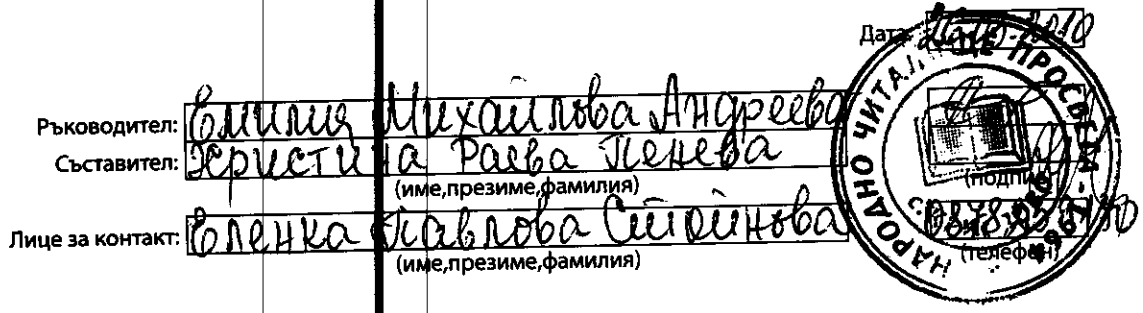 Дата:
Ръководител: Емилия Михайлова Андреева
Съставител: Христина Раева Пенева
(име,презиме,фамилия)
(подпис)
Лице за контакт: Еленка Павлова Стойнова
(име,презиме,фамилия)
(телефон)
НАРОДНО ЧИТАЛИЩЕ ПРОСВЕТА